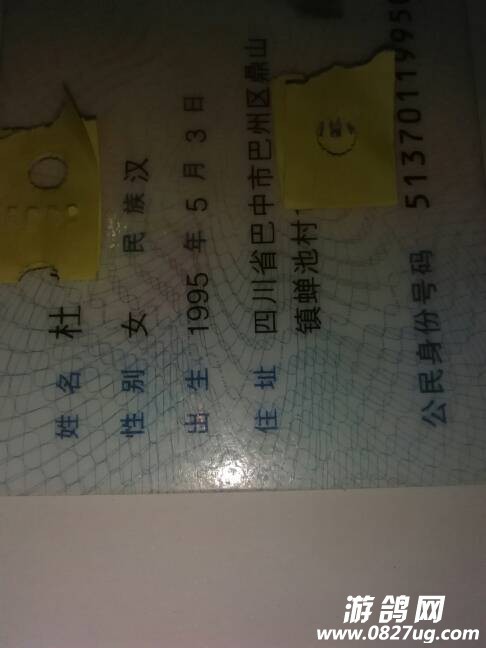 姓名 杜
性别 女 民族 汉
出生 1995 年 5 月 3 日
住址 四川省巴中市巴州区鼎山
镇蝉池村
公民身份号码 51370119950
游鸽网
www.0827ug.com